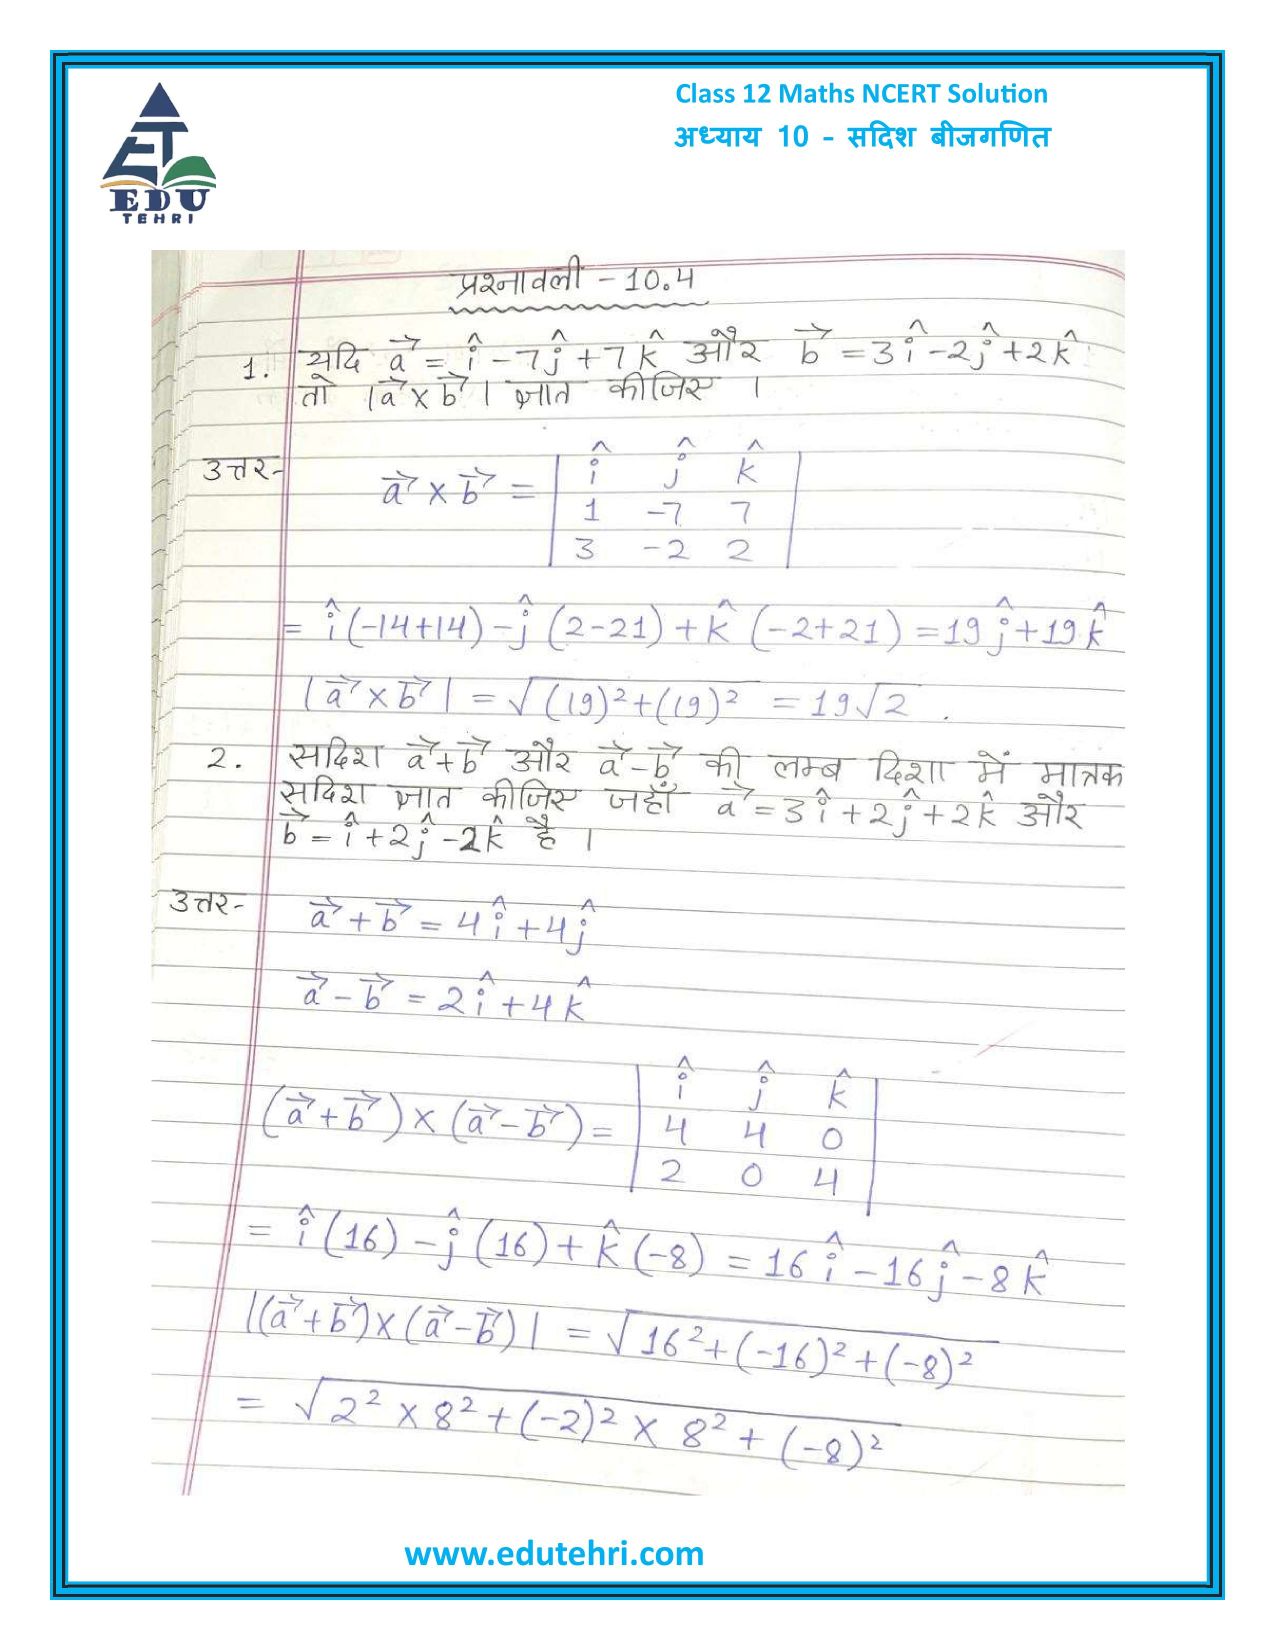 Class 12 Maths NCERT Solution
अध्याय 10 - सदिश बीजगणित
EDU
TEHRI
प्रश्नावली - 10.4
1. यदि a⃗ = î - 7ĵ + 7k̂ और b⃗ = 3î - 2ĵ + 2k̂
तो |a⃗ × b⃗| ज्ञात कीजिए ।
उत्तर- a⃗ × b⃗ = | î ĵ k̂ |
| 1 -7 7 |
| 3 -2 2 |
= î (-14+14) - ĵ (2-21) + k̂ (-2+21) = 19ĵ + 19k̂
|a⃗ × b⃗| = √(19)²+(19)² = 19√2 .
2. सदिश a⃗+b⃗ और a⃗-b⃗ की लम्ब दिशा में मात्रक
सदिश ज्ञात कीजिए जहाँ a⃗ = 3î + 2ĵ + 2k̂ और
b⃗ = î + 2ĵ - 2k̂ है ।
उत्तर- a⃗ + b⃗ = 4î + 4ĵ
a⃗ - b⃗ = 2î + 4k̂
(a⃗ + b⃗) × (a⃗ - b⃗) = | î ĵ k̂ |
| 4 4 0 |
| 2 0 4 |
= î (16) - ĵ (16) + k̂ (-8) = 16î - 16ĵ - 8k̂
|(a⃗ + b⃗) × (a⃗ - b⃗)| = √16² + (-16)² + (-8)²
= √2² × 8² + (-2)² × 8² + (-8)²
www.edutehri.com